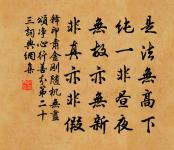 是法無高下
純一非晝夜
無故亦無新
非真亦非假
釋印肅金剛隨機無盡
頌淨心行善分第二十
三詞典網集